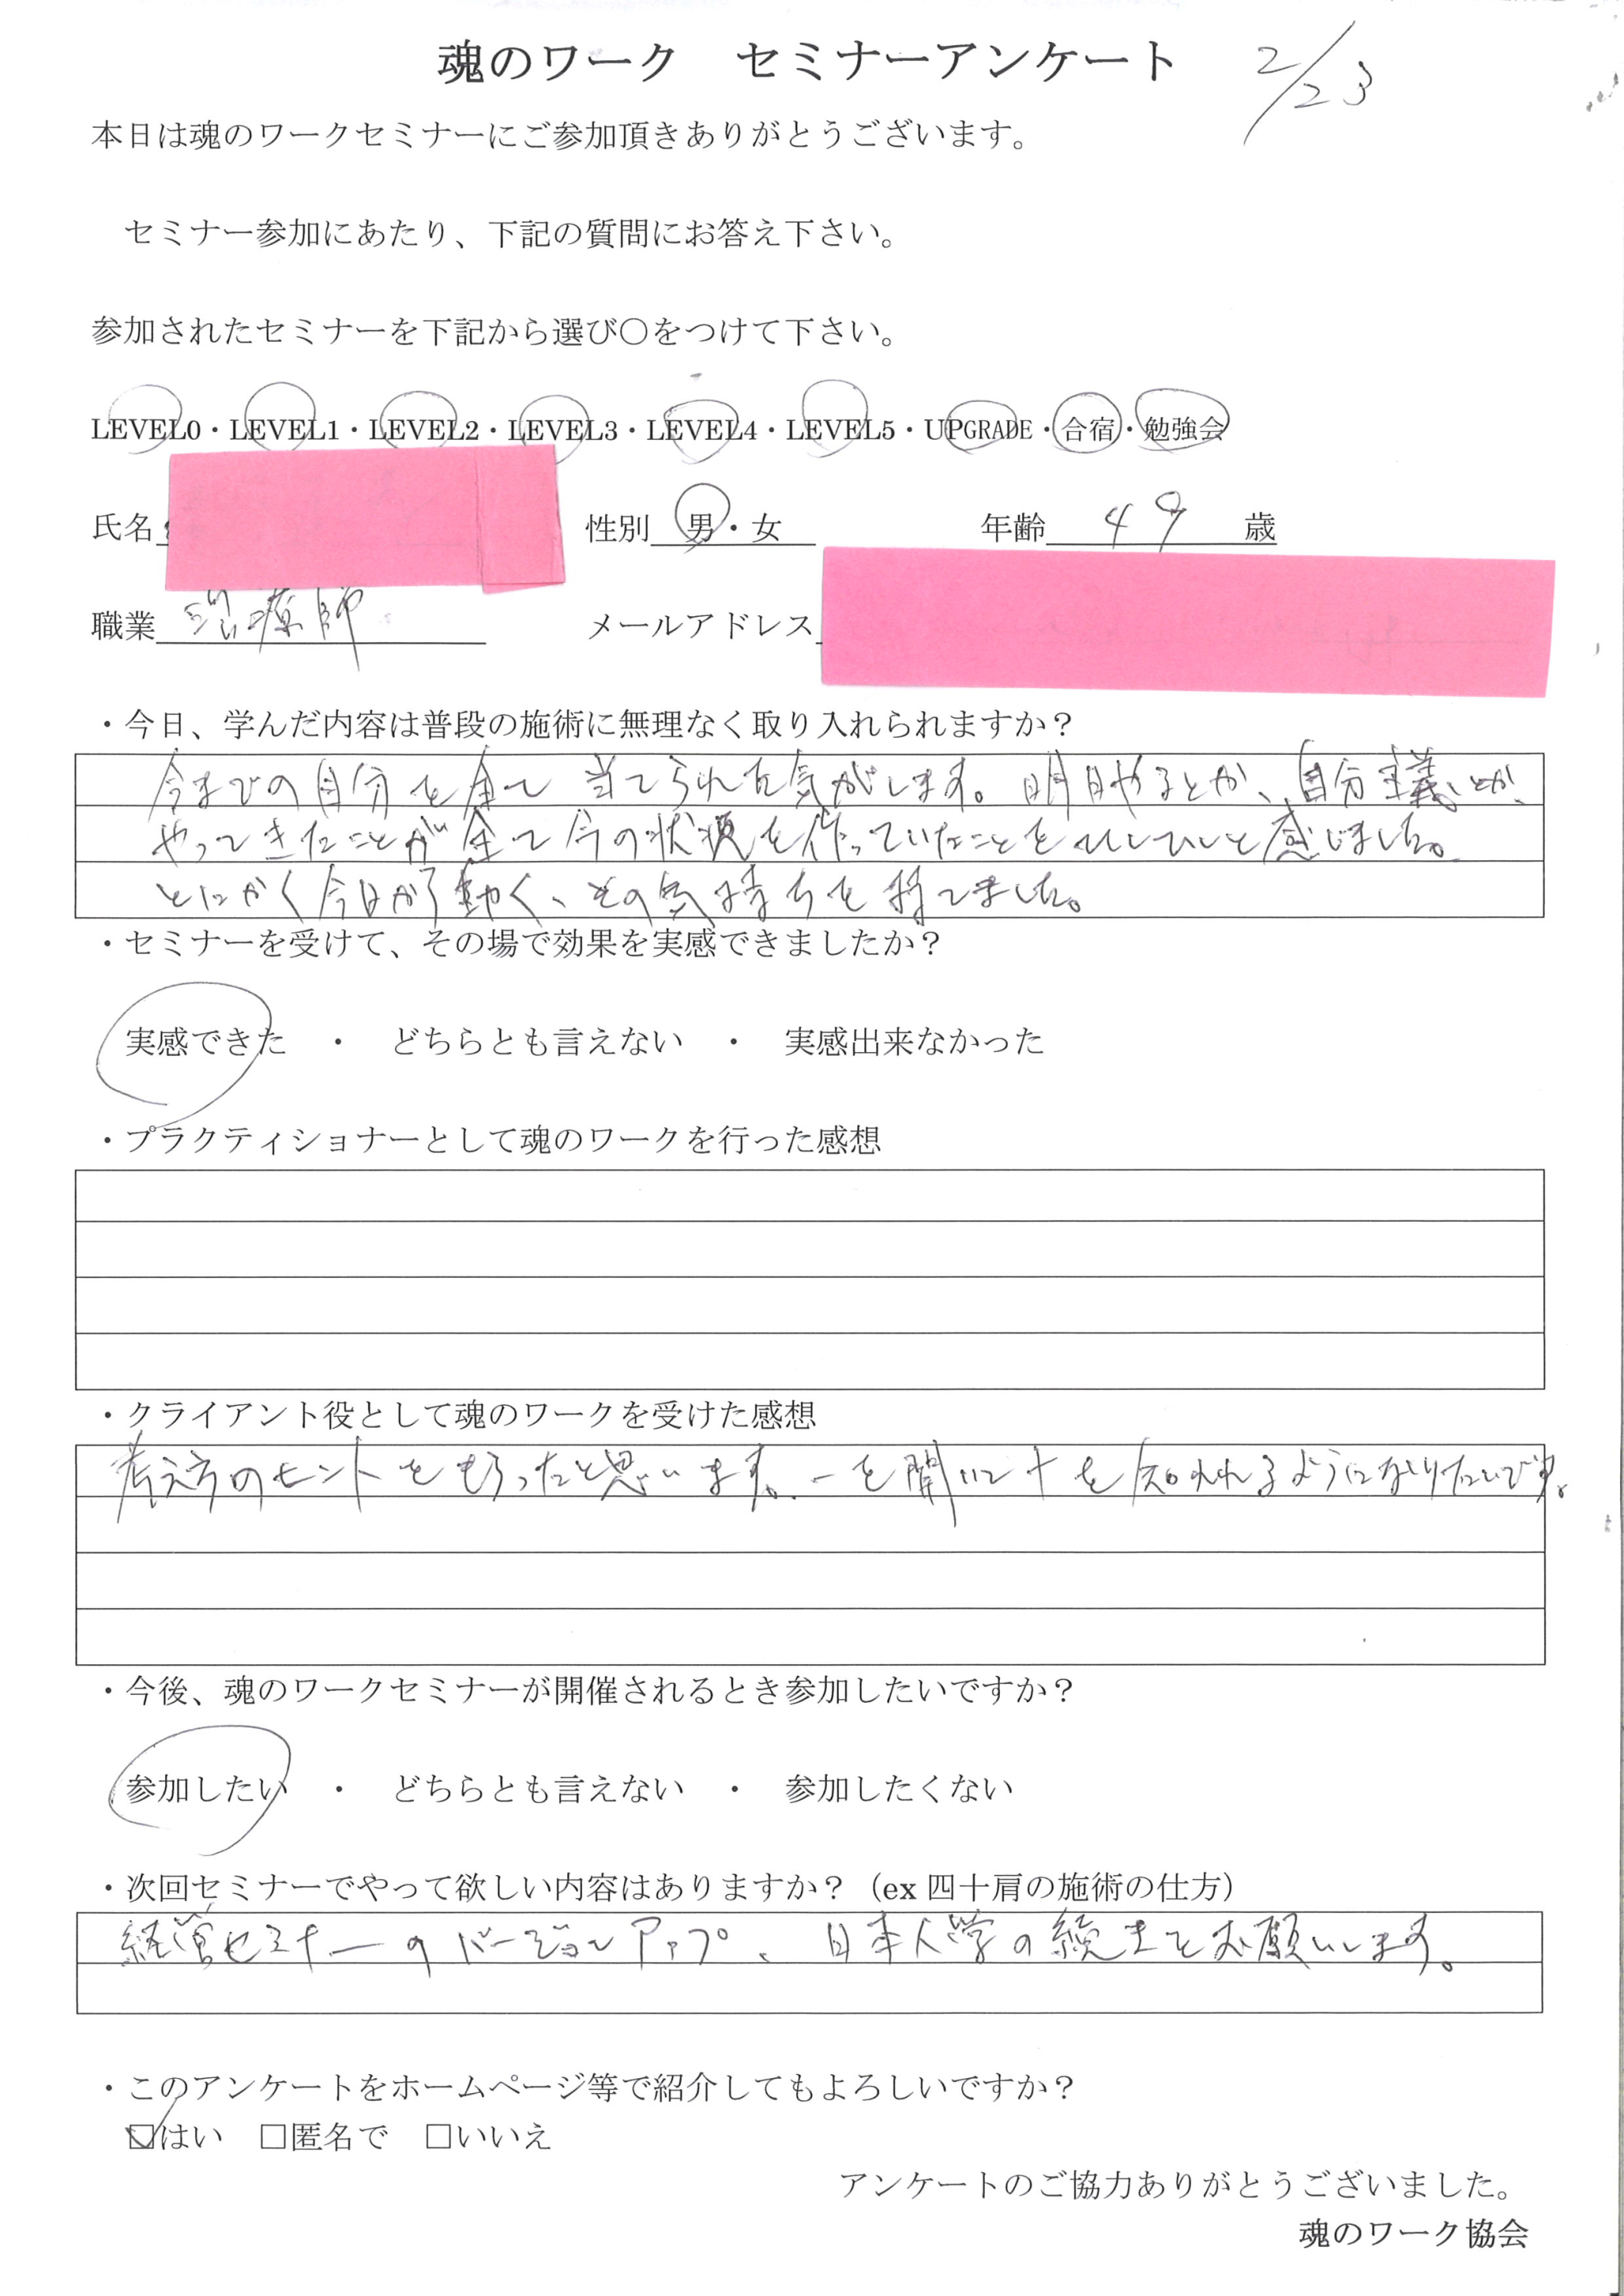 魂のワーク　セミナーアンケート　2/23
本日は魂のワークセミナーにご参加頂きありがとうございます。
セミナー参加にあたり、下記の質問にお答え下さい。
参加されたセミナーを下記から選び〇をつけて下さい。
LEVEL0・LEVEL1・LEVEL2・LEVEL3・LEVEL4・LEVEL5・UPGRADE・合宿・勉強会
氏名　性別　男・女　年齢　49　歳
職業　療師　メールアドレス
・今日、学んだ内容は普段の施術に無理なく取り入れられますか？
今までの自分を全て当てられた気がします。明日やるとか、自分主義とか、
やってきたことが全て今の状況を作っていたことをひしひしと感じました。
とにかく今日から動く、その気持ちを持てました。
・セミナーを受けて、その場で効果を実感できましたか？
実感できた　・　どちらとも言えない　・　実感出来なかった
・プラクティショナーとして魂のワークを行った感想
・クライアント役として魂のワークを受けた感想
考え方のヒントをもらったと思います。一を聞いて十を知れるようになりたいです。
・今後、魂のワークセミナーが開催されるとき参加したいですか？
参加したい　・　どちらとも言えない　・　参加したくない
・次回セミナーでやって欲しい内容はありますか？（ex 四十肩の施術の仕方）
経営セミナーのバージョンアップ、日本人学の続きをお願いします。
・このアンケートをホームページ等で紹介してもよろしいですか？
☑はい　□匿名で　□いいえ
アンケートのご協力ありがとうございました。
魂のワーク協会